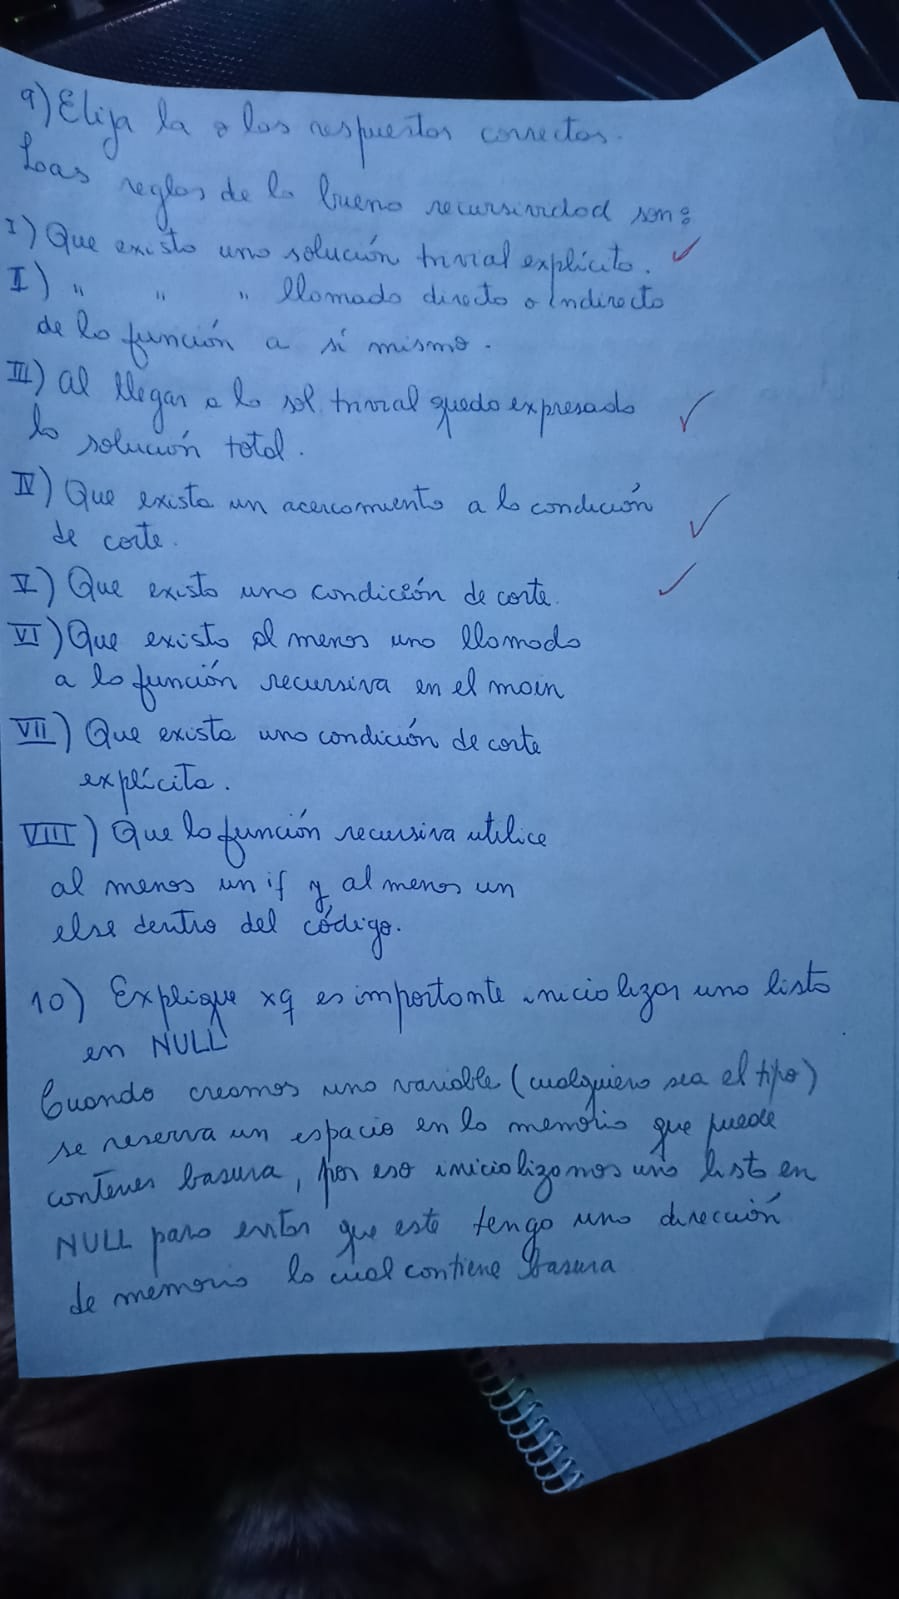 9) Elija la o las respuestas correctas.
Loas reglas de la buena recursividad son:
I) Que exista una solución trivial explícita. ✓
II) " " " llamada directa o indirecta
de la función a sí misma.
III) Al llegar a la sol. trivial queda expresada ✓
la solución total.
IV) Que exista un acercamiento a la condición ✓
de corte.
V) Que exista una condición de corte. ✓
VI) Que exista al menos una llamada
a la función recursiva en el main
VII) Que exista una condición de corte
explícita.
VIII) Que la función recursiva utilice
al menos un if y al menos un
else dentro del código.
10) Explique xq es importante inicializar una lista
en NULL
Cuando creamos una variable (cualquiera sea el tipo)
se reserva un espacio en la memoria que puede
contener basura, por eso inicializamos una lista en
NULL para evitar que esta tenga una dirección
de memoria la cual contiene basura